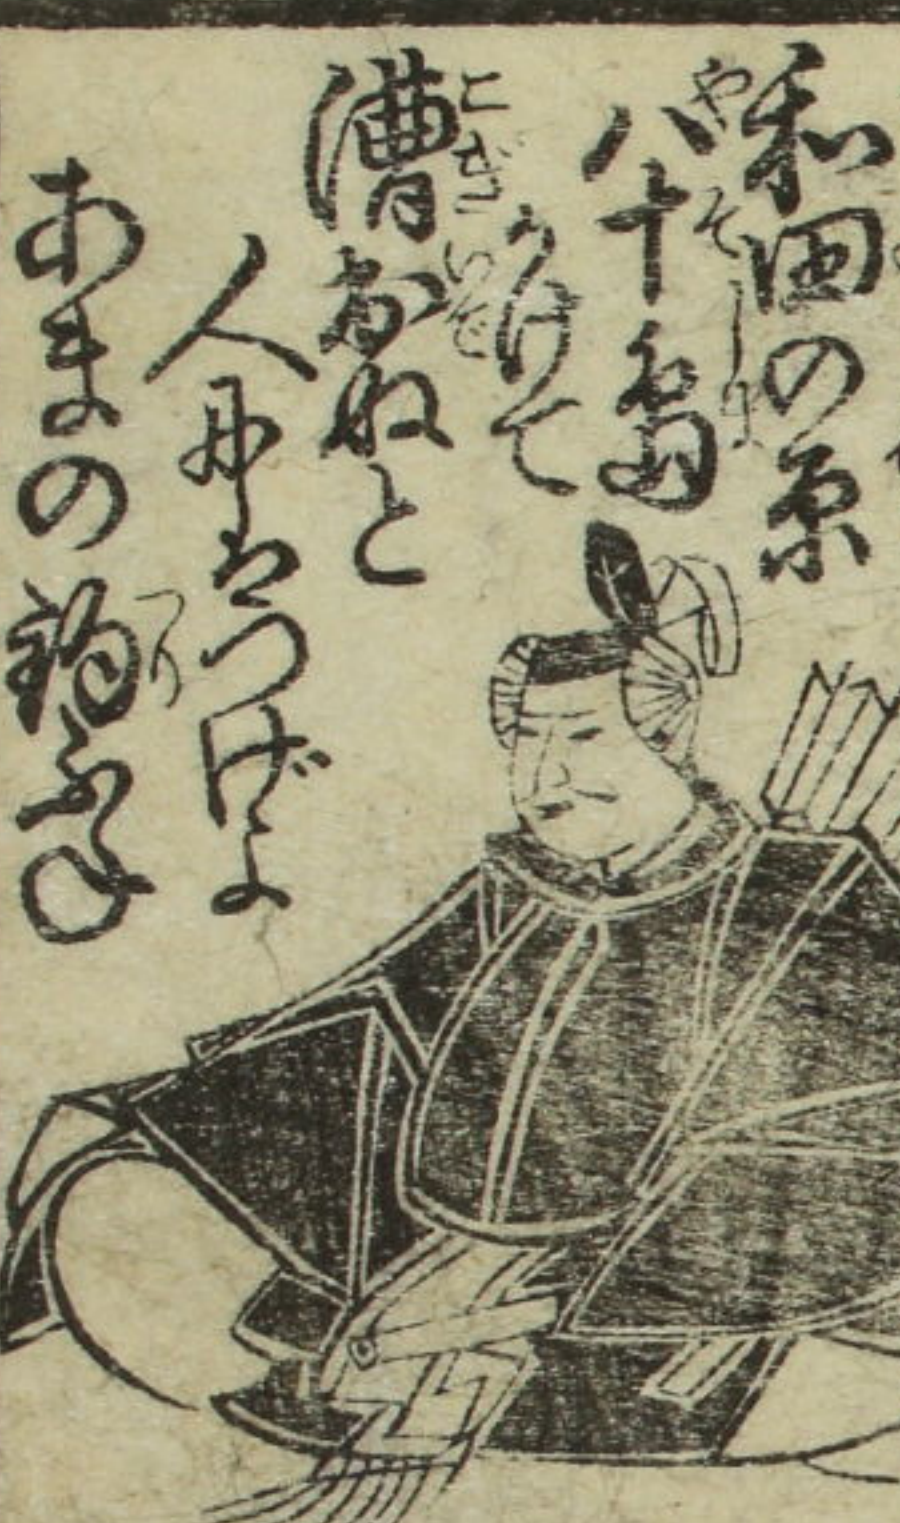 和田の原
八十嶋
かけて
漕出ぬと
人丹はつげよ
あまの釣ふね